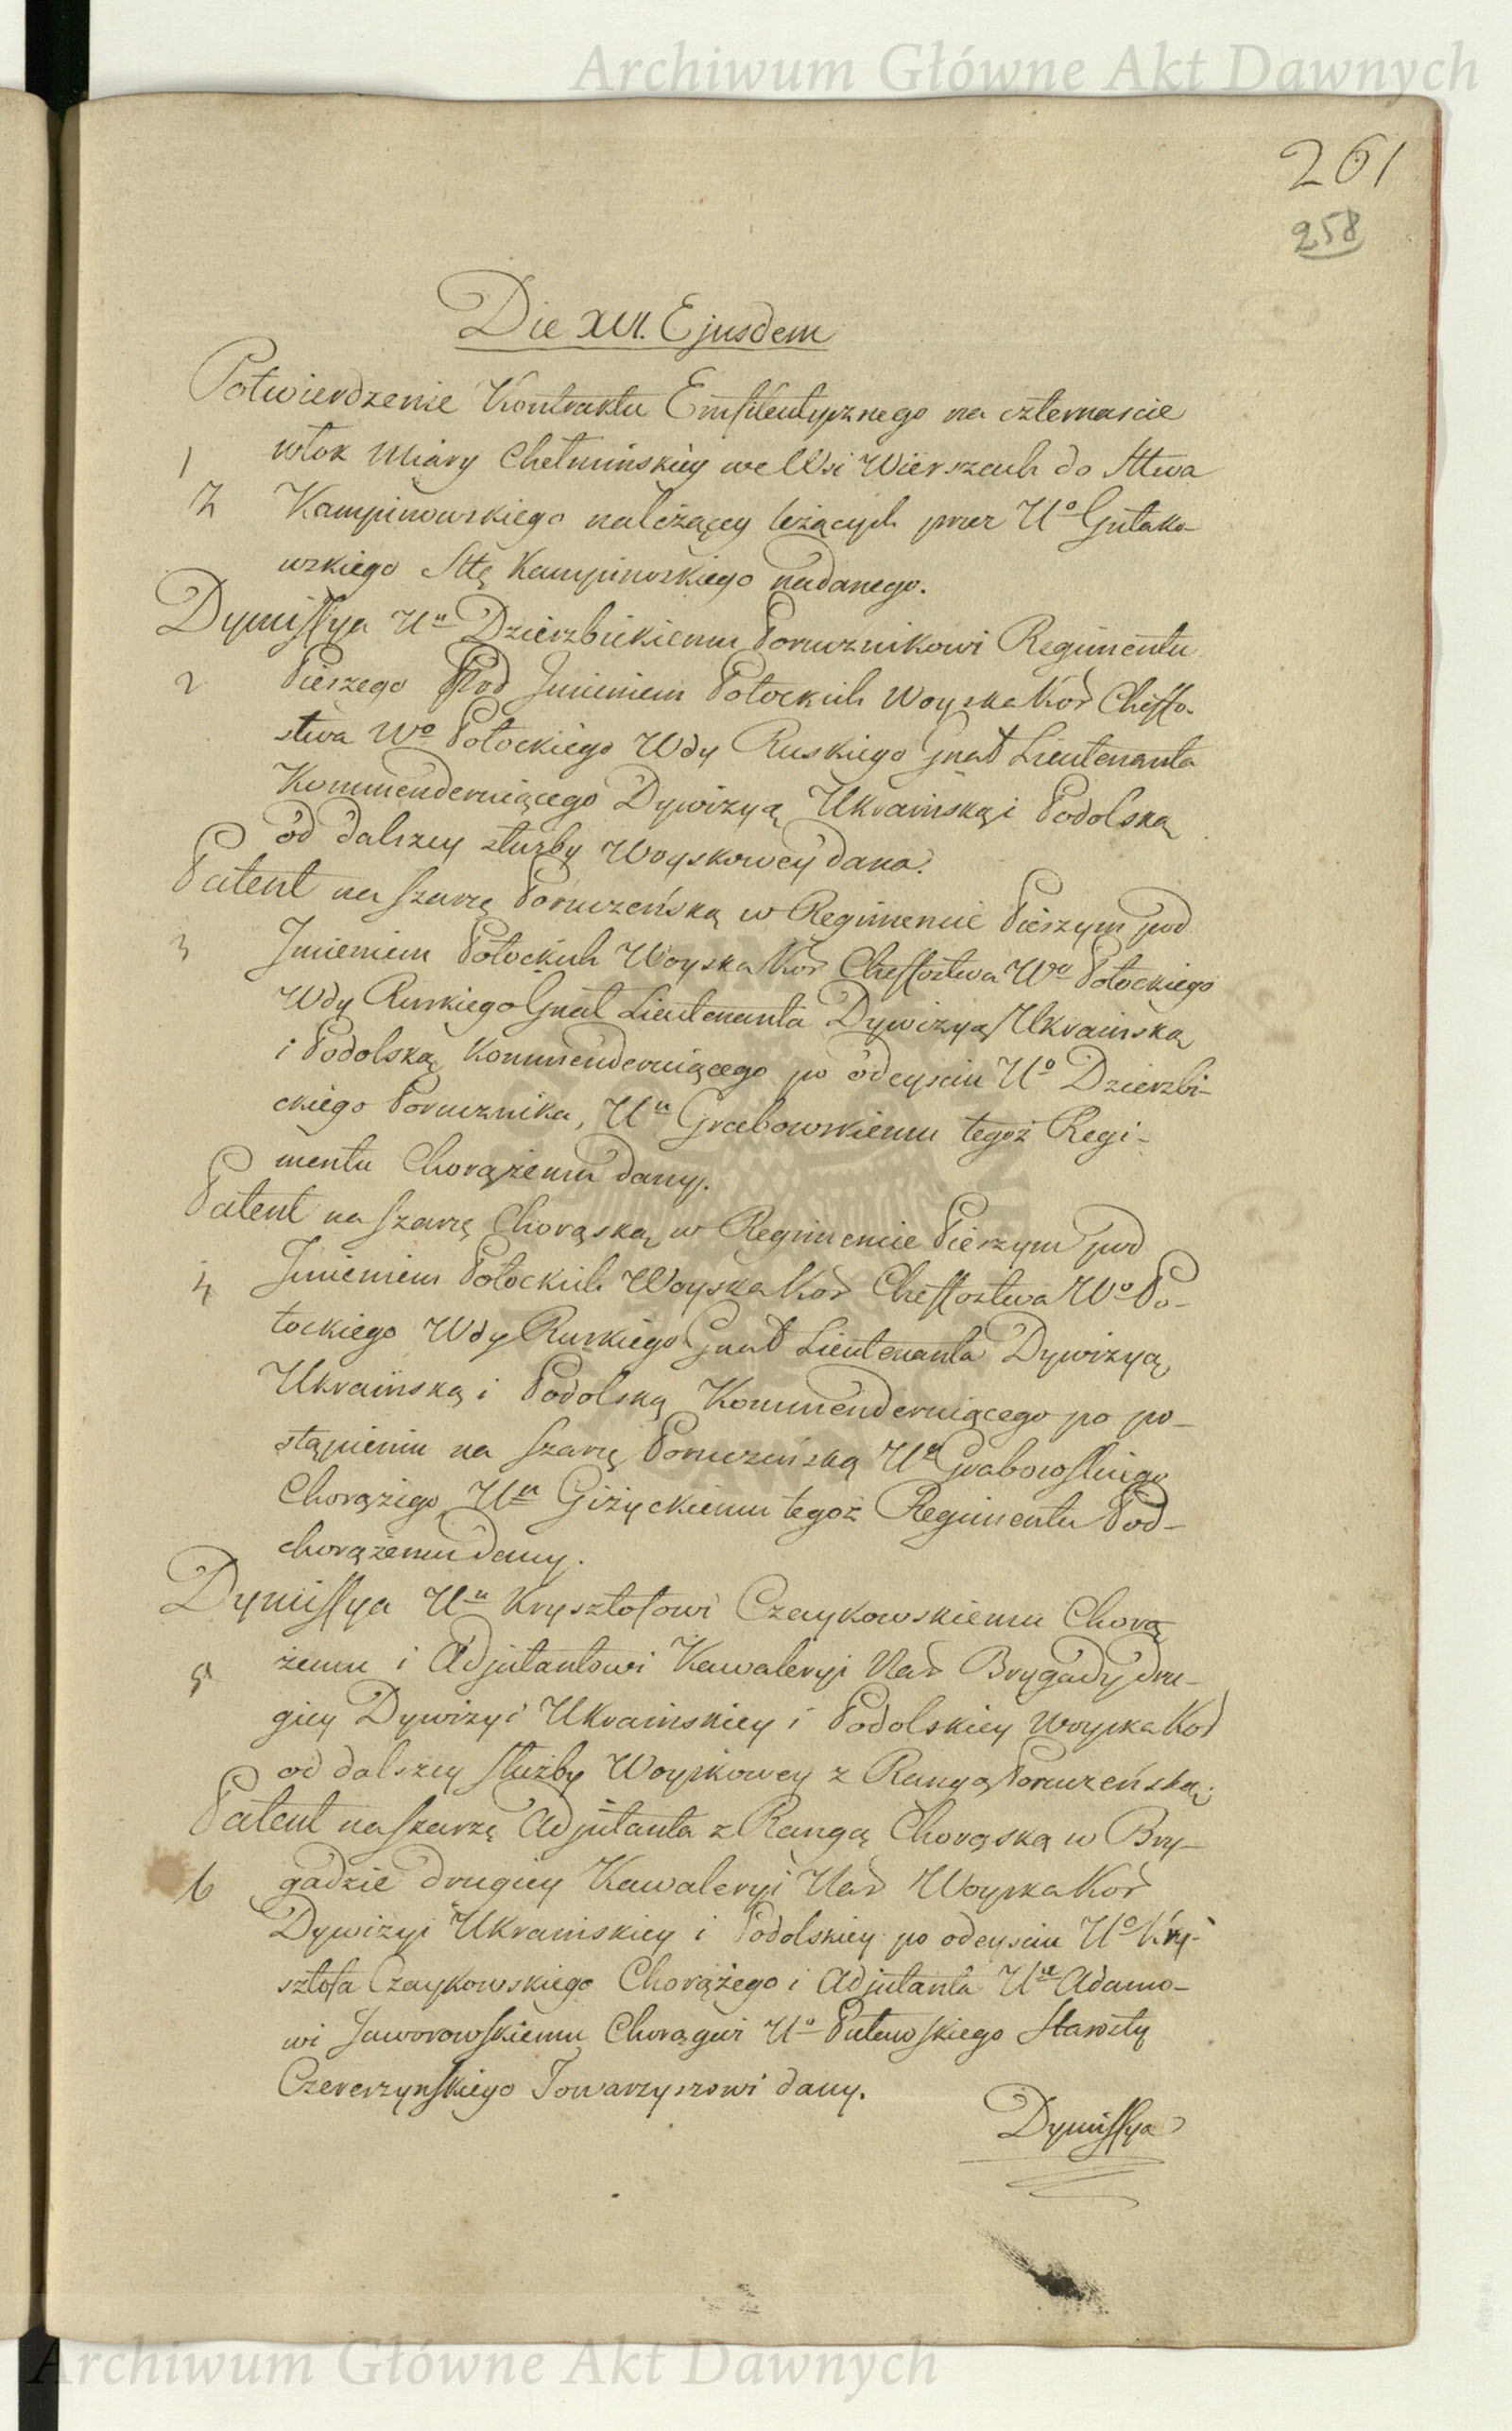 Archiwum Główne Akt Dawnych
261
258
Die XVI. Ejusdem
Potwierdzenie Kontraktu Emfiteutycznego na czternascie
1 włok Miary Chełminskiey we Wsi Wierszach do Sttwa
Kampinowskiego należącey leżących przez Uo Gutako-
wskiego Sttę Kampinoskiego nadanego.
Dymissya Uu Dzierzbickiemu Porucznikowi Regimentu
2 Pieszego Pod Jmieniem Potockich Woyska Kor Cheffo-
stwa Wo Potockiego Wdy Ruskiego Gnał Lieutenanta
Kommenderuiącego Dywizyą Ukrainską i Podolską
od dalszey służby Woyskowey dana.
Patent na szarżę Poruczeńską w Regimencie Pieszym pod
3 Jmieniem Potockich Woyska Kor Cheffostwa Wo Potockiego
Wdy Ruskiego Gnał Lieutenanta Dywizyą Ukrainską
i Podolską Kommenderuiącego po odeyściu Uo Dzierzbi-
ckiego Porucznika, Uu Grabowskiemu tegoż Regi-
mentu Chorążemu dany.
Patent na szarżę Chorąską w Regimencie Pieszym pod
4 Jmieniem Potockich Woyska Kor Cheffostwa Wo Po-
tockiego Wdy Ruskiego Gnał Lieutenanta Dywizyą
Ukraińską i Podolską Kommenderuiącego po po-
stąpieniu na szarżę Poruczeńską Uo Grabowskiego
Chorążego Uu Giżyckiemu tegoż Regimentu Pod-
chorążemu dany.
Dymissya Uu Krysztofowi Czaykowskiemu Chorą
5 żemu i Adjutantowi Kawaleryi Nar Brygady dru-
giey Dywizyi Ukrainskiey i Podolskiey Woyska Kor
od dalszey służby Woyskowey z Rangą Poruczeńską.
Patent na szarżę Adjutanta z Rangą Chorąską w Bry-
6 gadzie drugiey Kawaleryi Nar Woyska Kor
Dywizyi Ukrainskiey i Podolskiey po odeyściu Uo Kry-
sztofa Czaykowskiego Chorążego i Adjutanta Uu Adamo-
wi Jaworowskiemu Chorągwi Uo Putowskiego Starosty
Czereczynskiego Towarzyszowi dany.
Dymissya
Archiwum Główne Akt Dawnych